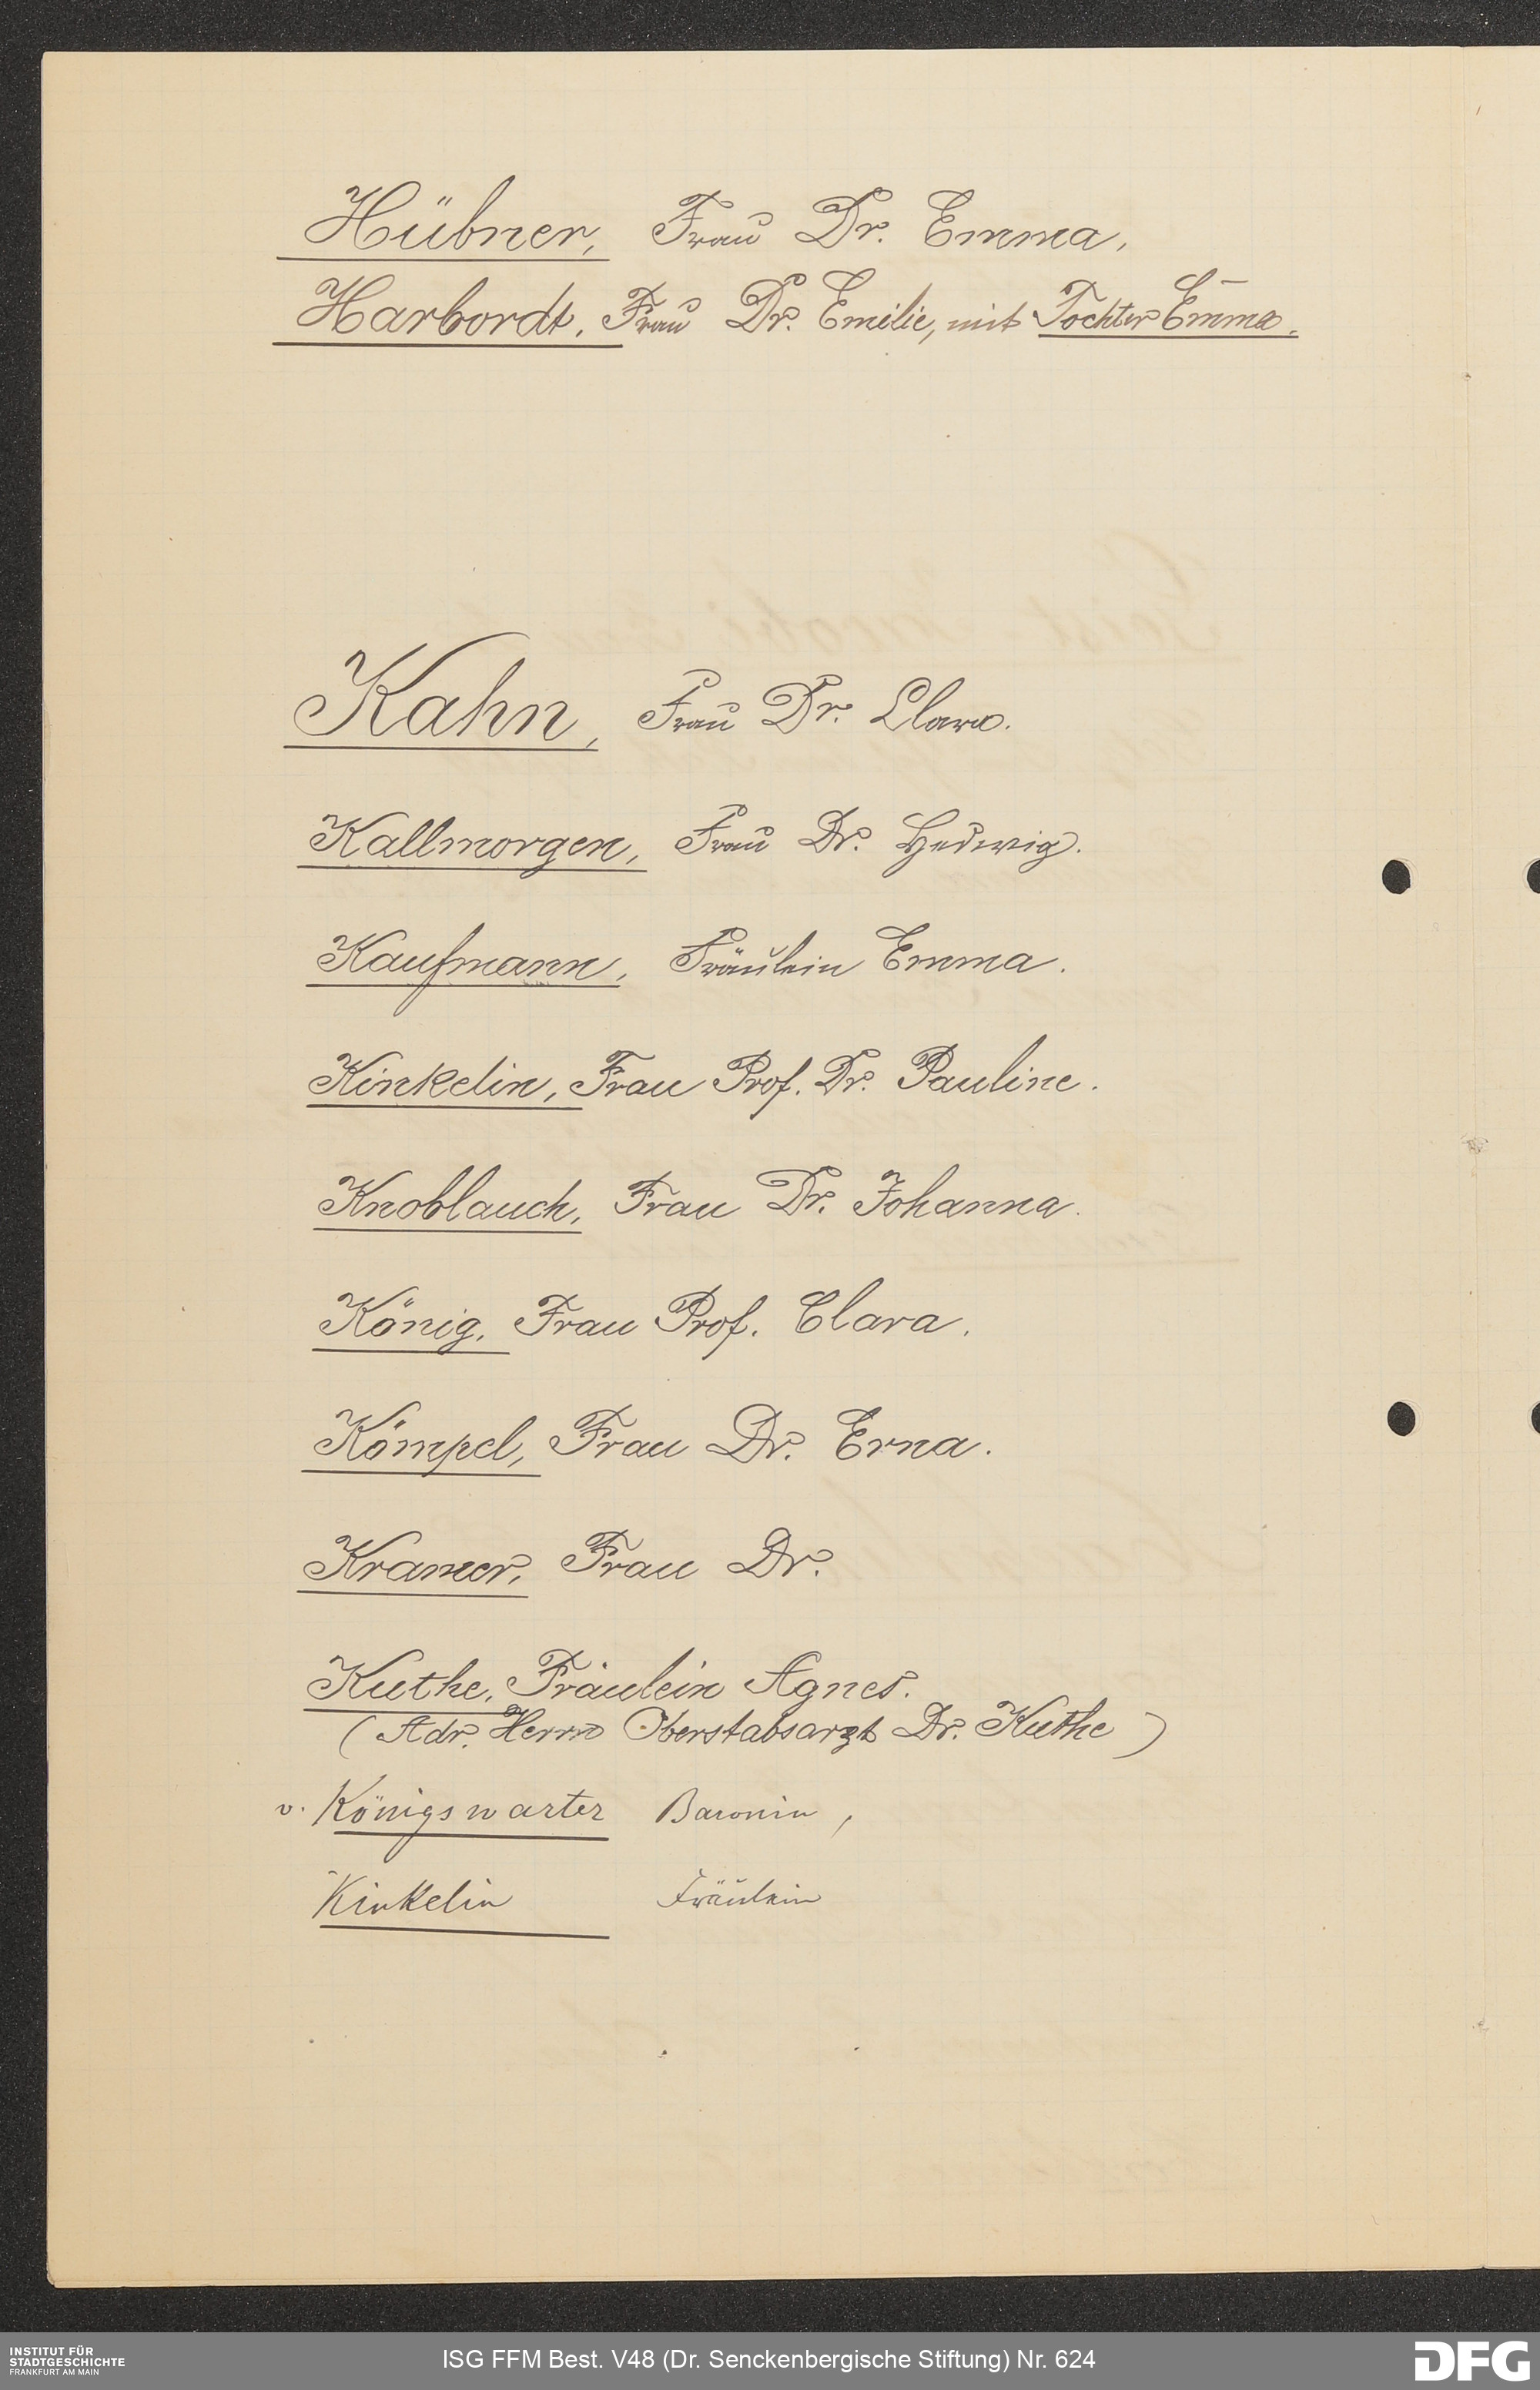 Hübner, Frau Dr. Emma.
Harbordt, Frau Dr. Emilie, mit Tochter Em̅ma.
Kahn, Frau Dr. Clara.
Kallmorgen, Frau Dr. Hedwig.
Kaufmann, Fräulein Emma.
Kinkelin, Frau Prof. Dr. Pauline.
Knoblauch, Frau Dr. Johanna.
König, Frau Prof. Clara.
Kömpel, Frau Dr. Erna.
Kramer, Frau Dr.
Kuthe, Fräulein Agnes.
(Adr. Herrn Oberstabsarzt Dr. Kuthe)
v. Königswarter Baronin,
Kinkelin Fräulein
INSTITUT FÜR
STADTGESCHICHTE
FRANKFURT AM MAIN
ISG FFM Best. V48 (Dr. Senckenbergische Stiftung) Nr. 624
DFG